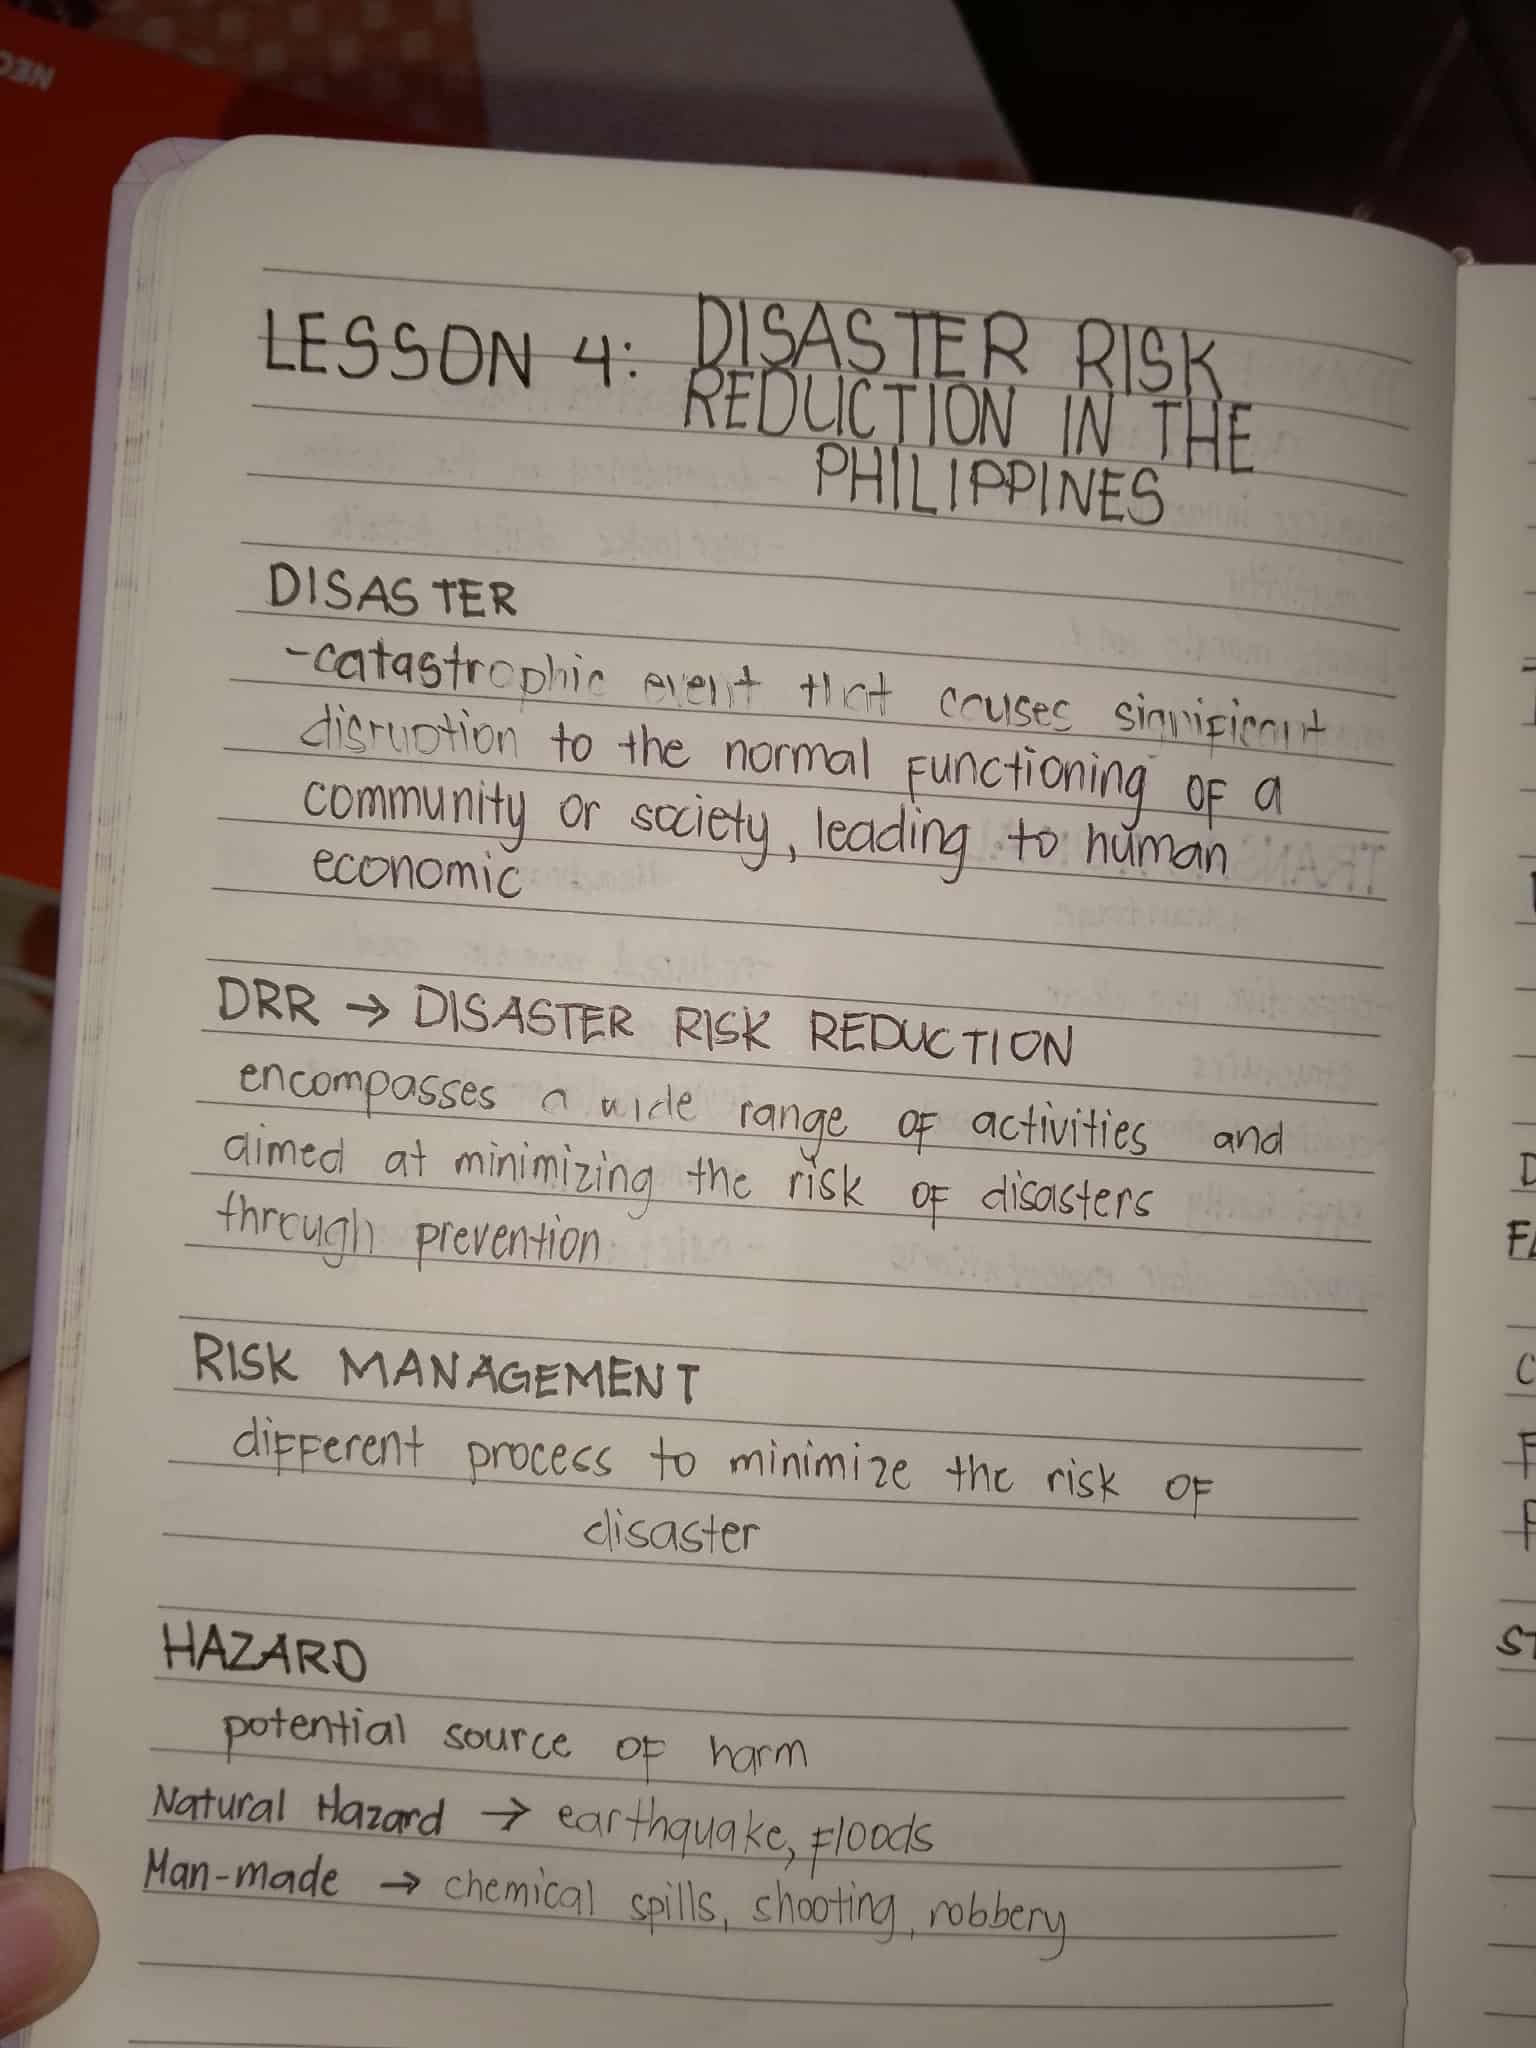 LESSON 4: DISASTER RISK
REDUCTION IN THE
PHILIPPINES
DISASTER
-catastrophic event that causes significant
disruption to the normal functioning of a
community or society, leading to human
economic
DRR → DISASTER RISK REDUCTION
encompasses a wide range of activities and
aimed at minimizing the risk of disasters
through prevention
RISK MANAGEMENT
different process to minimize the risk of
disaster
HAZARD
potential source of harm
Natural Hazard → earthquake, floods
Man-made → chemical spills, shooting, robbery